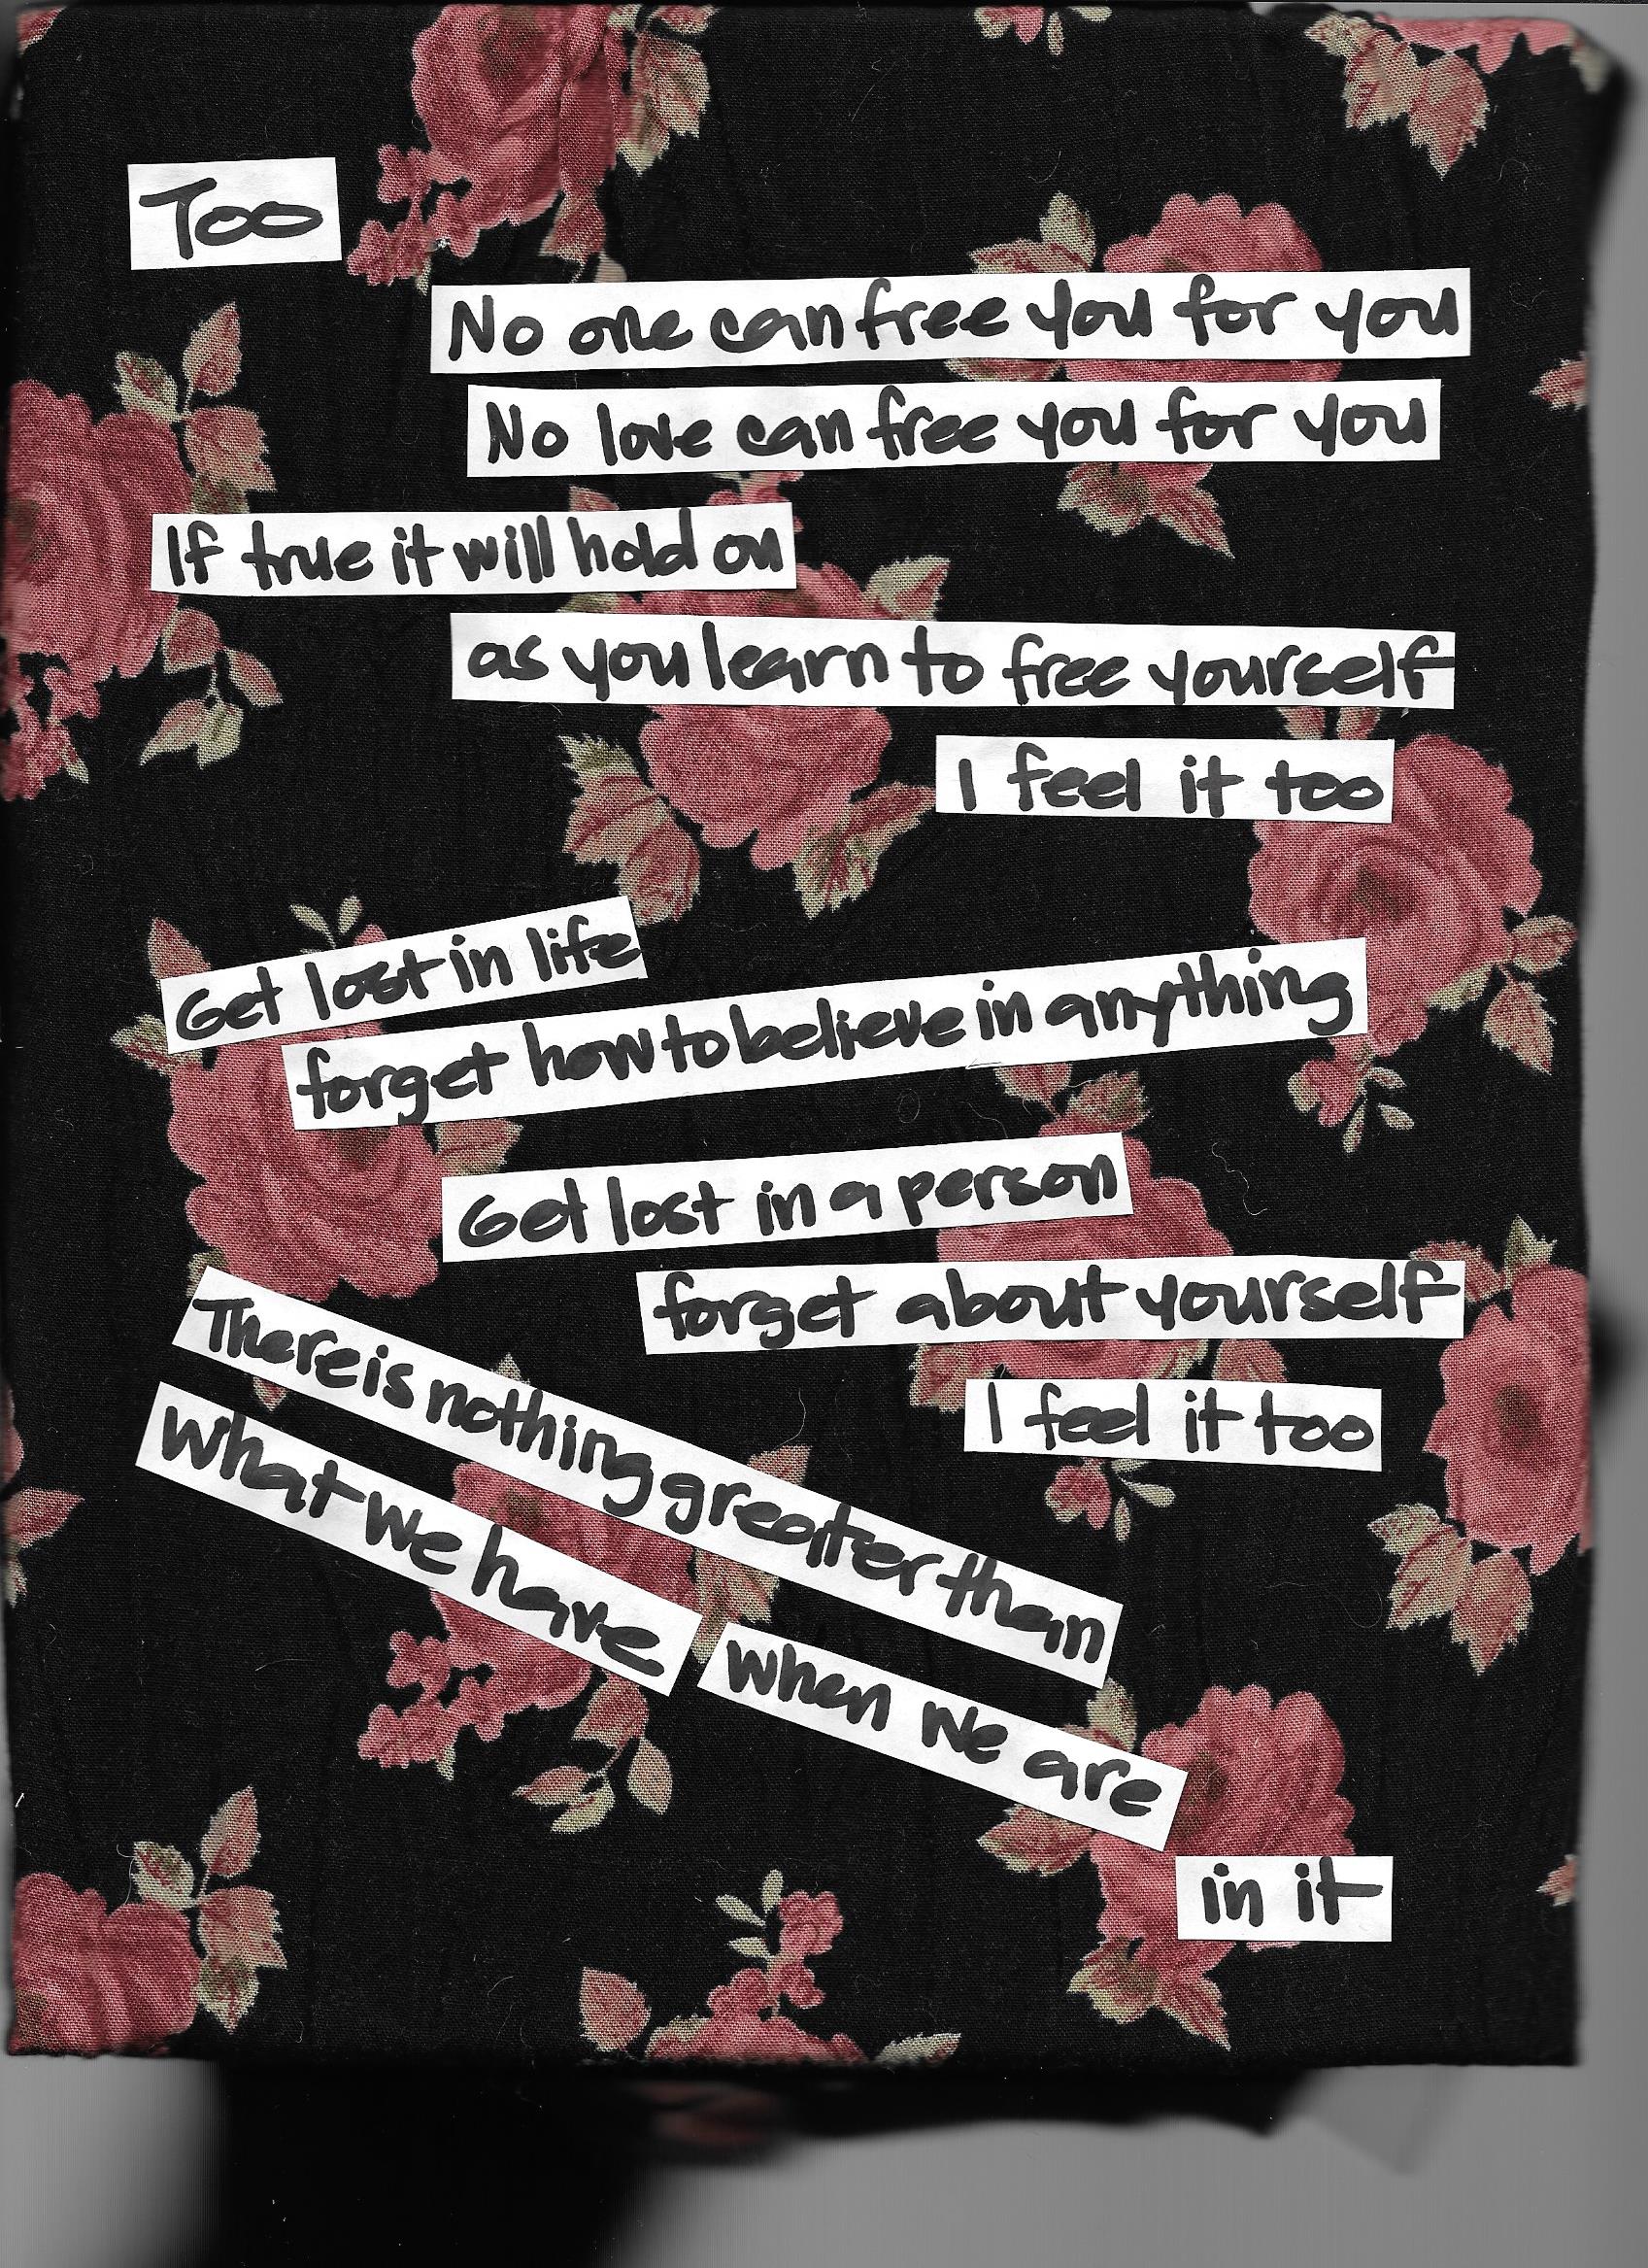 Too
No one can free you for you
No love can free you for you
If true it will hold on
as you learn to free yourself
I feel it too
Get lost in life
forget how to believe in anything
Get lost in a person
forget about yourself
I feel it too
There is nothing greater than
what we have when we are
in it